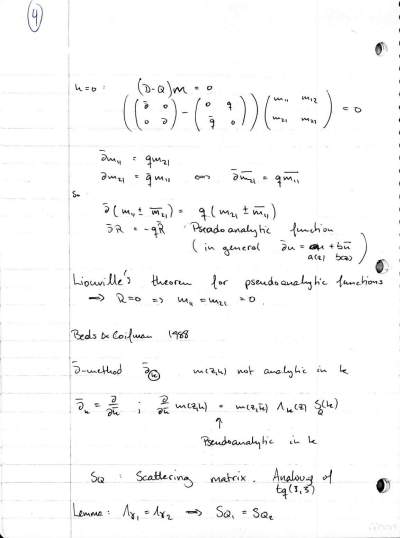 4
k=0: (D-Q)m = 0
((∂̄ 0 0 ∂) - (0 q q̄ 0)) (m₁₁ m₁₂ m₂₁ m₂₂) = 0
∂̄m₁₁ = qm₂₁
∂m₂₁ = q̄m₁₁ ⟺ ∂̄m̄₂₁ = qm̄₁₁
So
∂̄(m₁₁ ± m̄₂₁) = q(m₂₁ ± m̄₁₁)
∂̄R = -qR̄ Pseudoanalytic function
(in general ∂̄u = au + bū)
a(z) b(z)
Liouville's theorem for pseudoanalytic functions
⟹ R=0 ⟹ m₁₁ = m₂₁ = 0.
Beals & Coifman 1988
∂̄-method ∂̄ₖ m(z,k) not analytic in k
∂̄ₖ = ∂/∂k̄ ; ∂/∂k̄ m(z,k) = m(z,k̄) Λₖ(z) S_Q(k)
↑
Pseudoanalytic in k
S_Q : Scattering matrix. Analoug of
t_q(ξ,ζ)
Lemma: Λγ₁ = Λγ₂ ⟹ S_Q₁ = S_Q₂